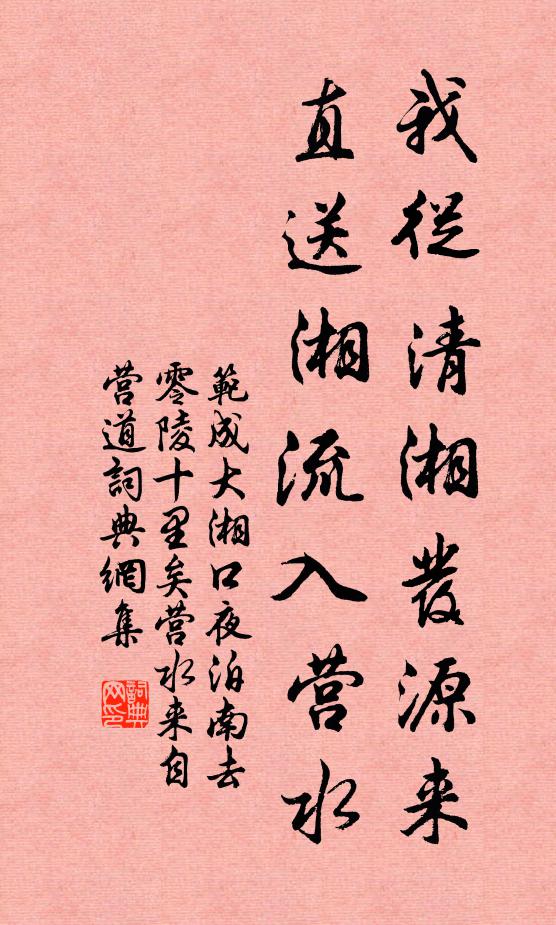 我從清湘發源来
直送湘流入营水
範成大湘口夜泊南去
零陵十里矣营水来自
营道詞典網集
詞典
网印